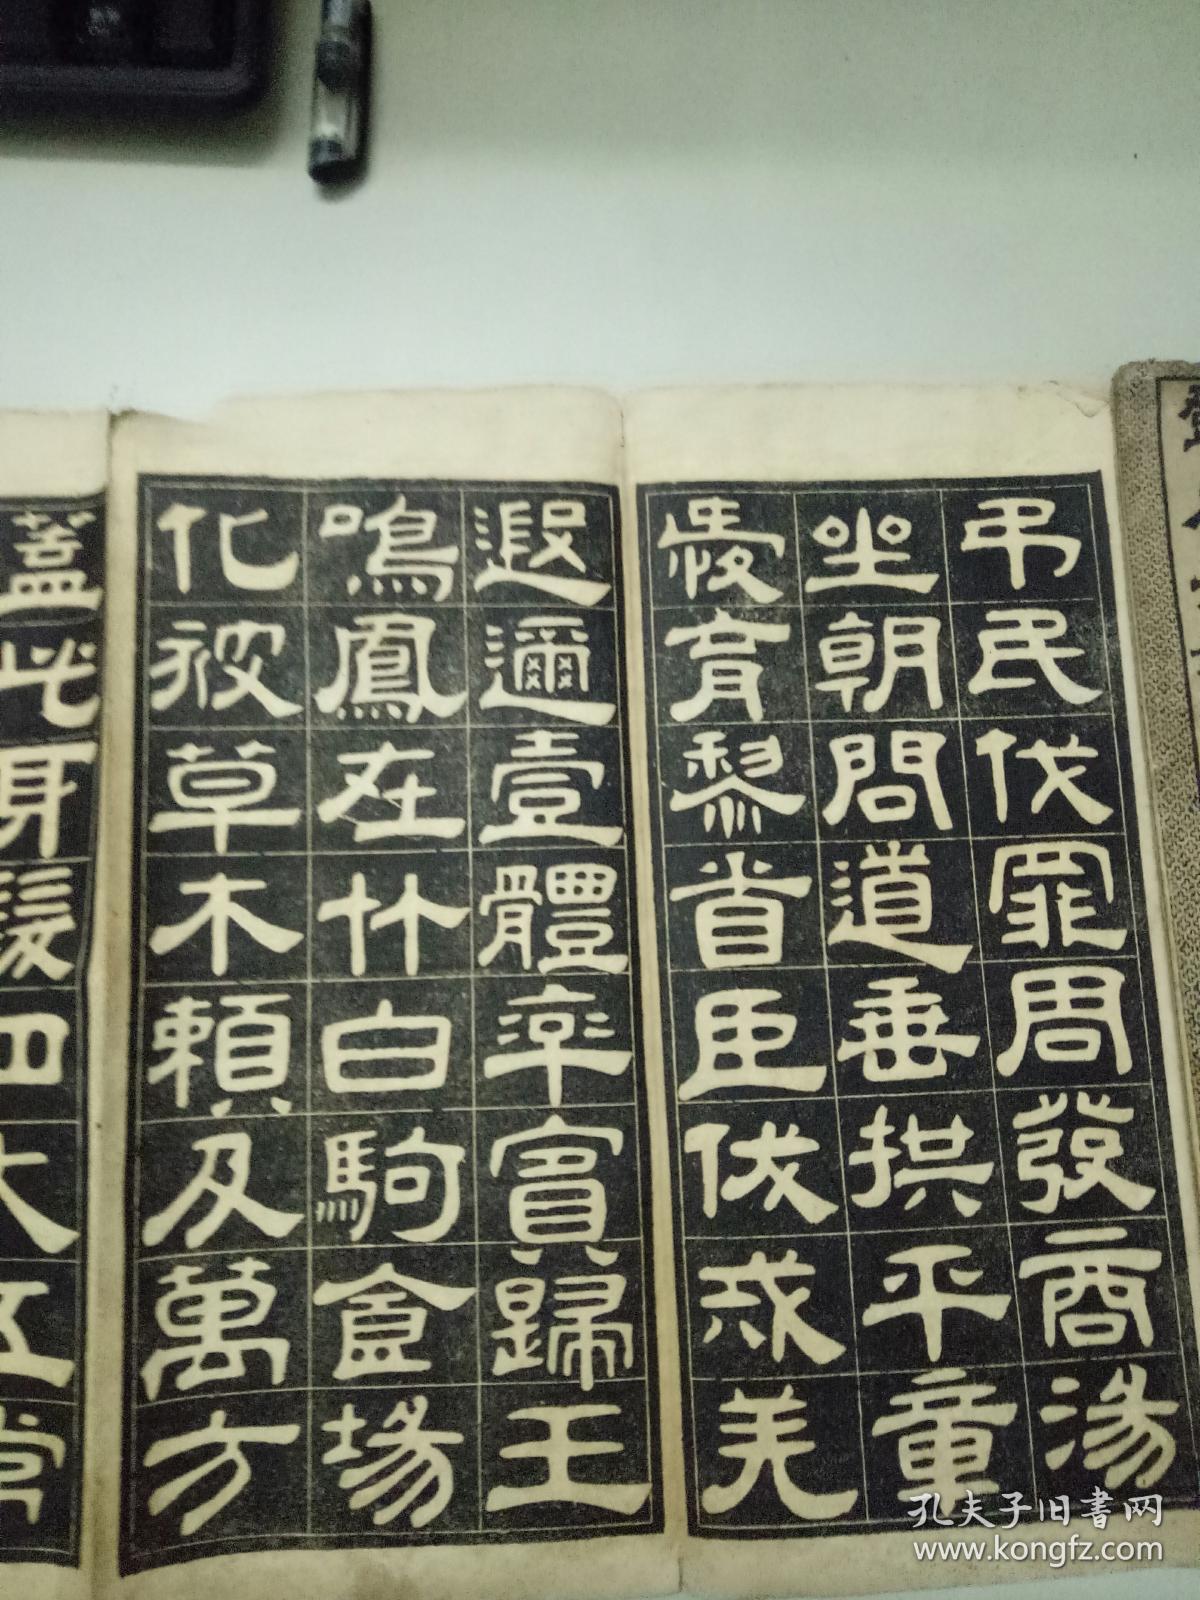 弔民伐罪周發商湯
坐朝問道垂拱平章
愛育黎首臣伏戎羌
遐邇壹體率賓歸王
鳴鳳在竹白駒食場
化被草木賴及萬方
蓋此身髮四大五常
孔夫子旧書网
www.kongfz.com